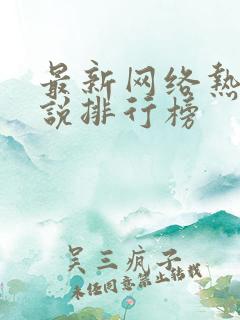 最新网络热
说排行榜
吴三疯子
未经同意禁止转载